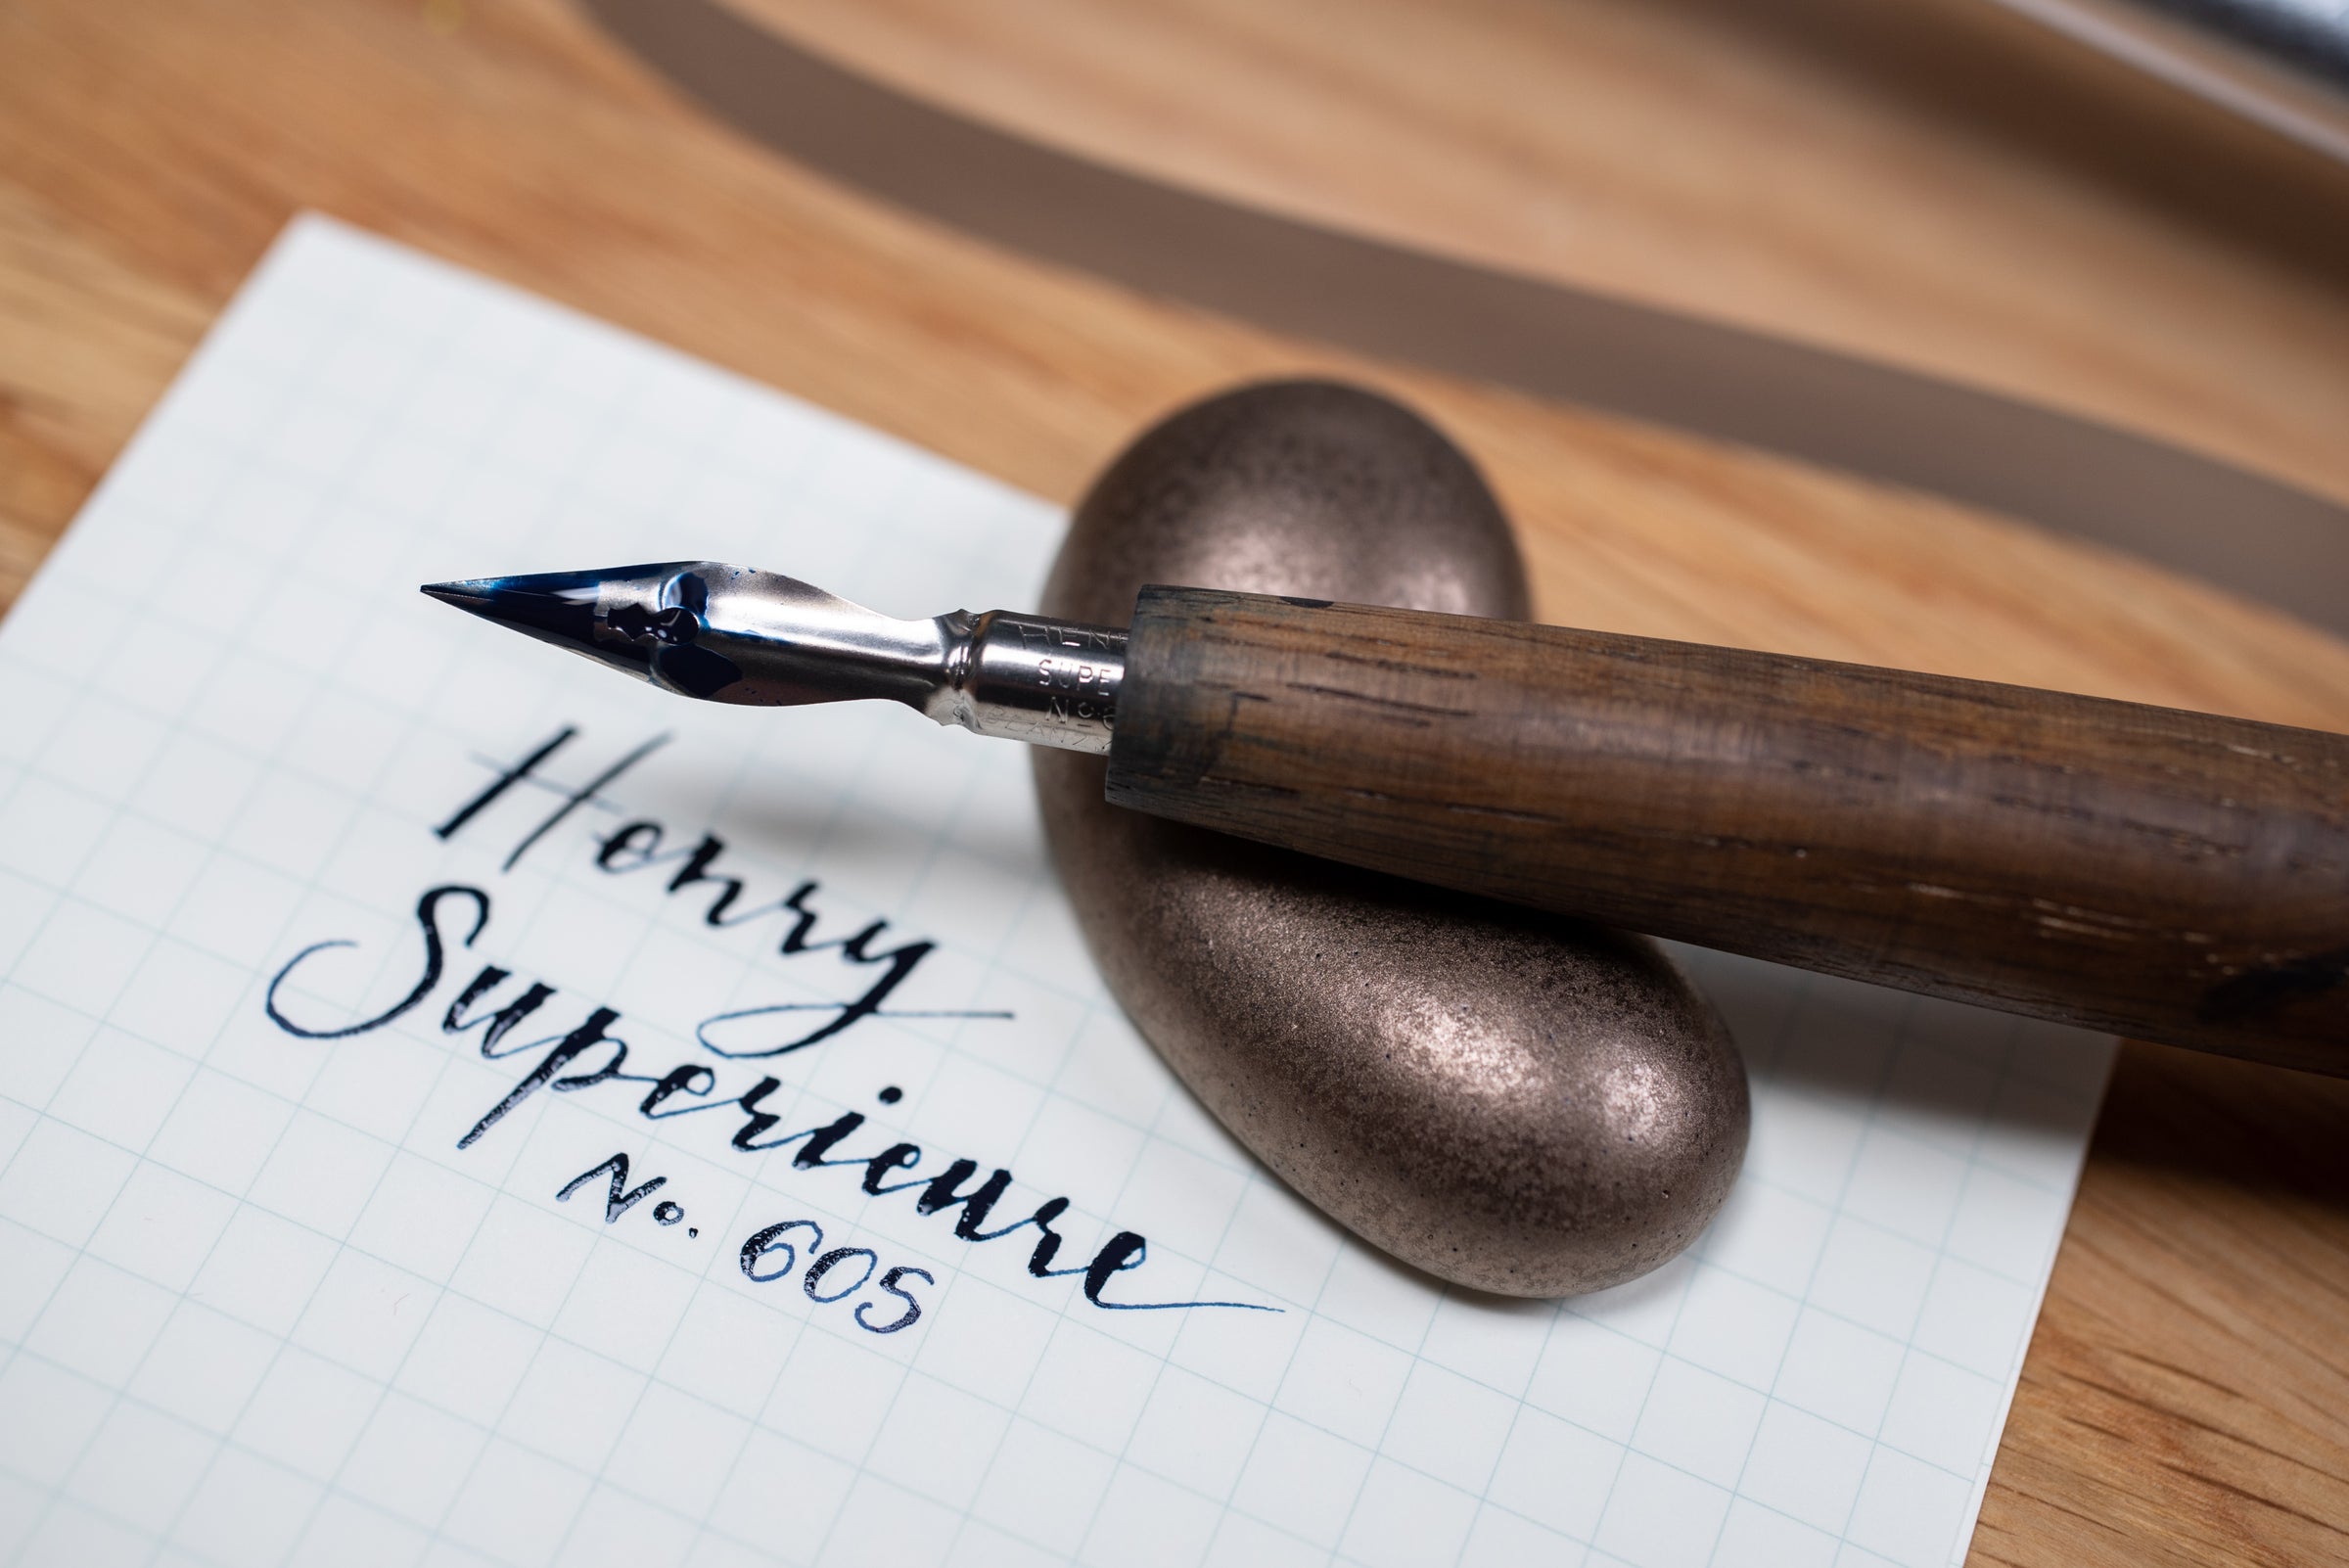 HEN
SUPE
Nº6
Henry
Superieure
No. 605